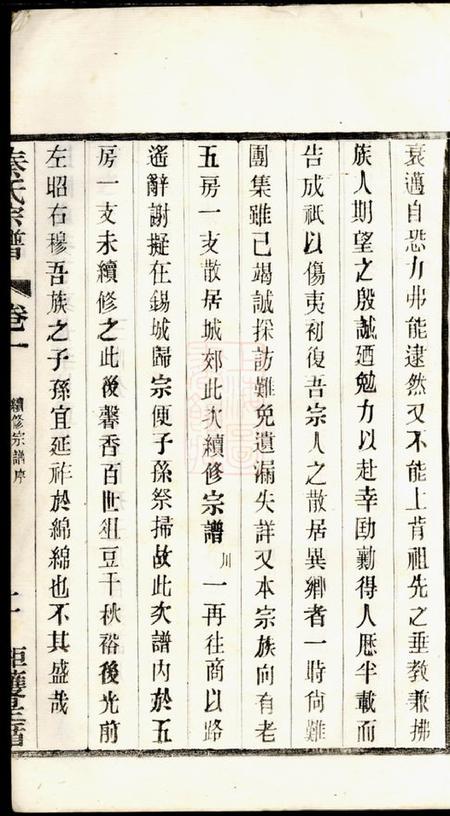 衰邁自恐力弗能逮然又不能上背祖先之垂教兼拂
族人期望之殷誠廼勉力以赴幸劻勷得人歷半載而
告成祇以傷夷初復吾宗人之散居異鄉者一時尙難
團集雖已竭誠採訪難免遺漏失詳又本宗族向有老
五房一支散居城郊此次續修宗譜川一再往商以路
遙辭謝擬在錫城歸宗便子孫祭掃故此次譜內於五
房一支未續修之此後馨香百世俎豆千秋裕後光前
左昭右穆吾族之子孫宜延祚於綿綿也不其盛哉
秦氏宗譜 卷一 續修宗譜序 二